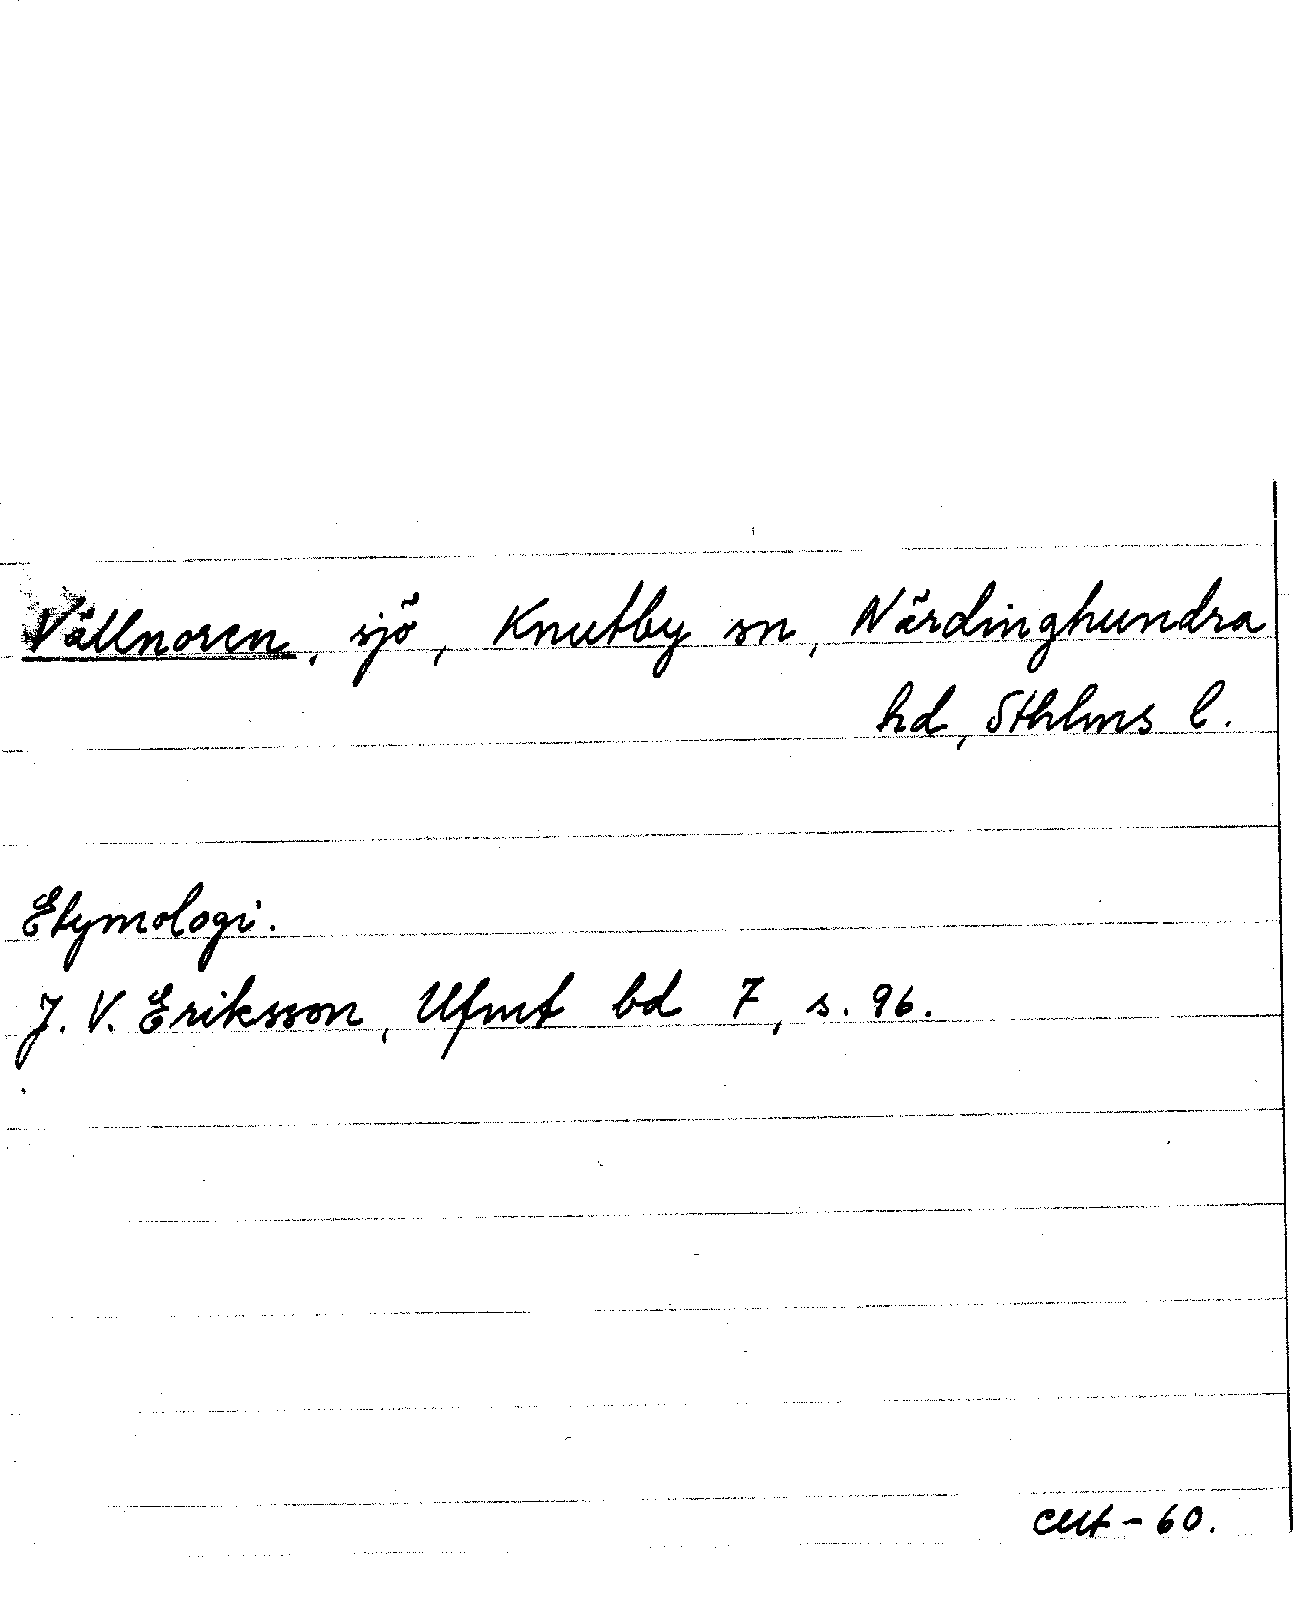 Vällnoren, sjö, Knutby sn, Närdinghundra
hd, Sthlms l.
Etymologi.
J. V. Eriksson, Ufmt bd 7, s. 96.
-60.